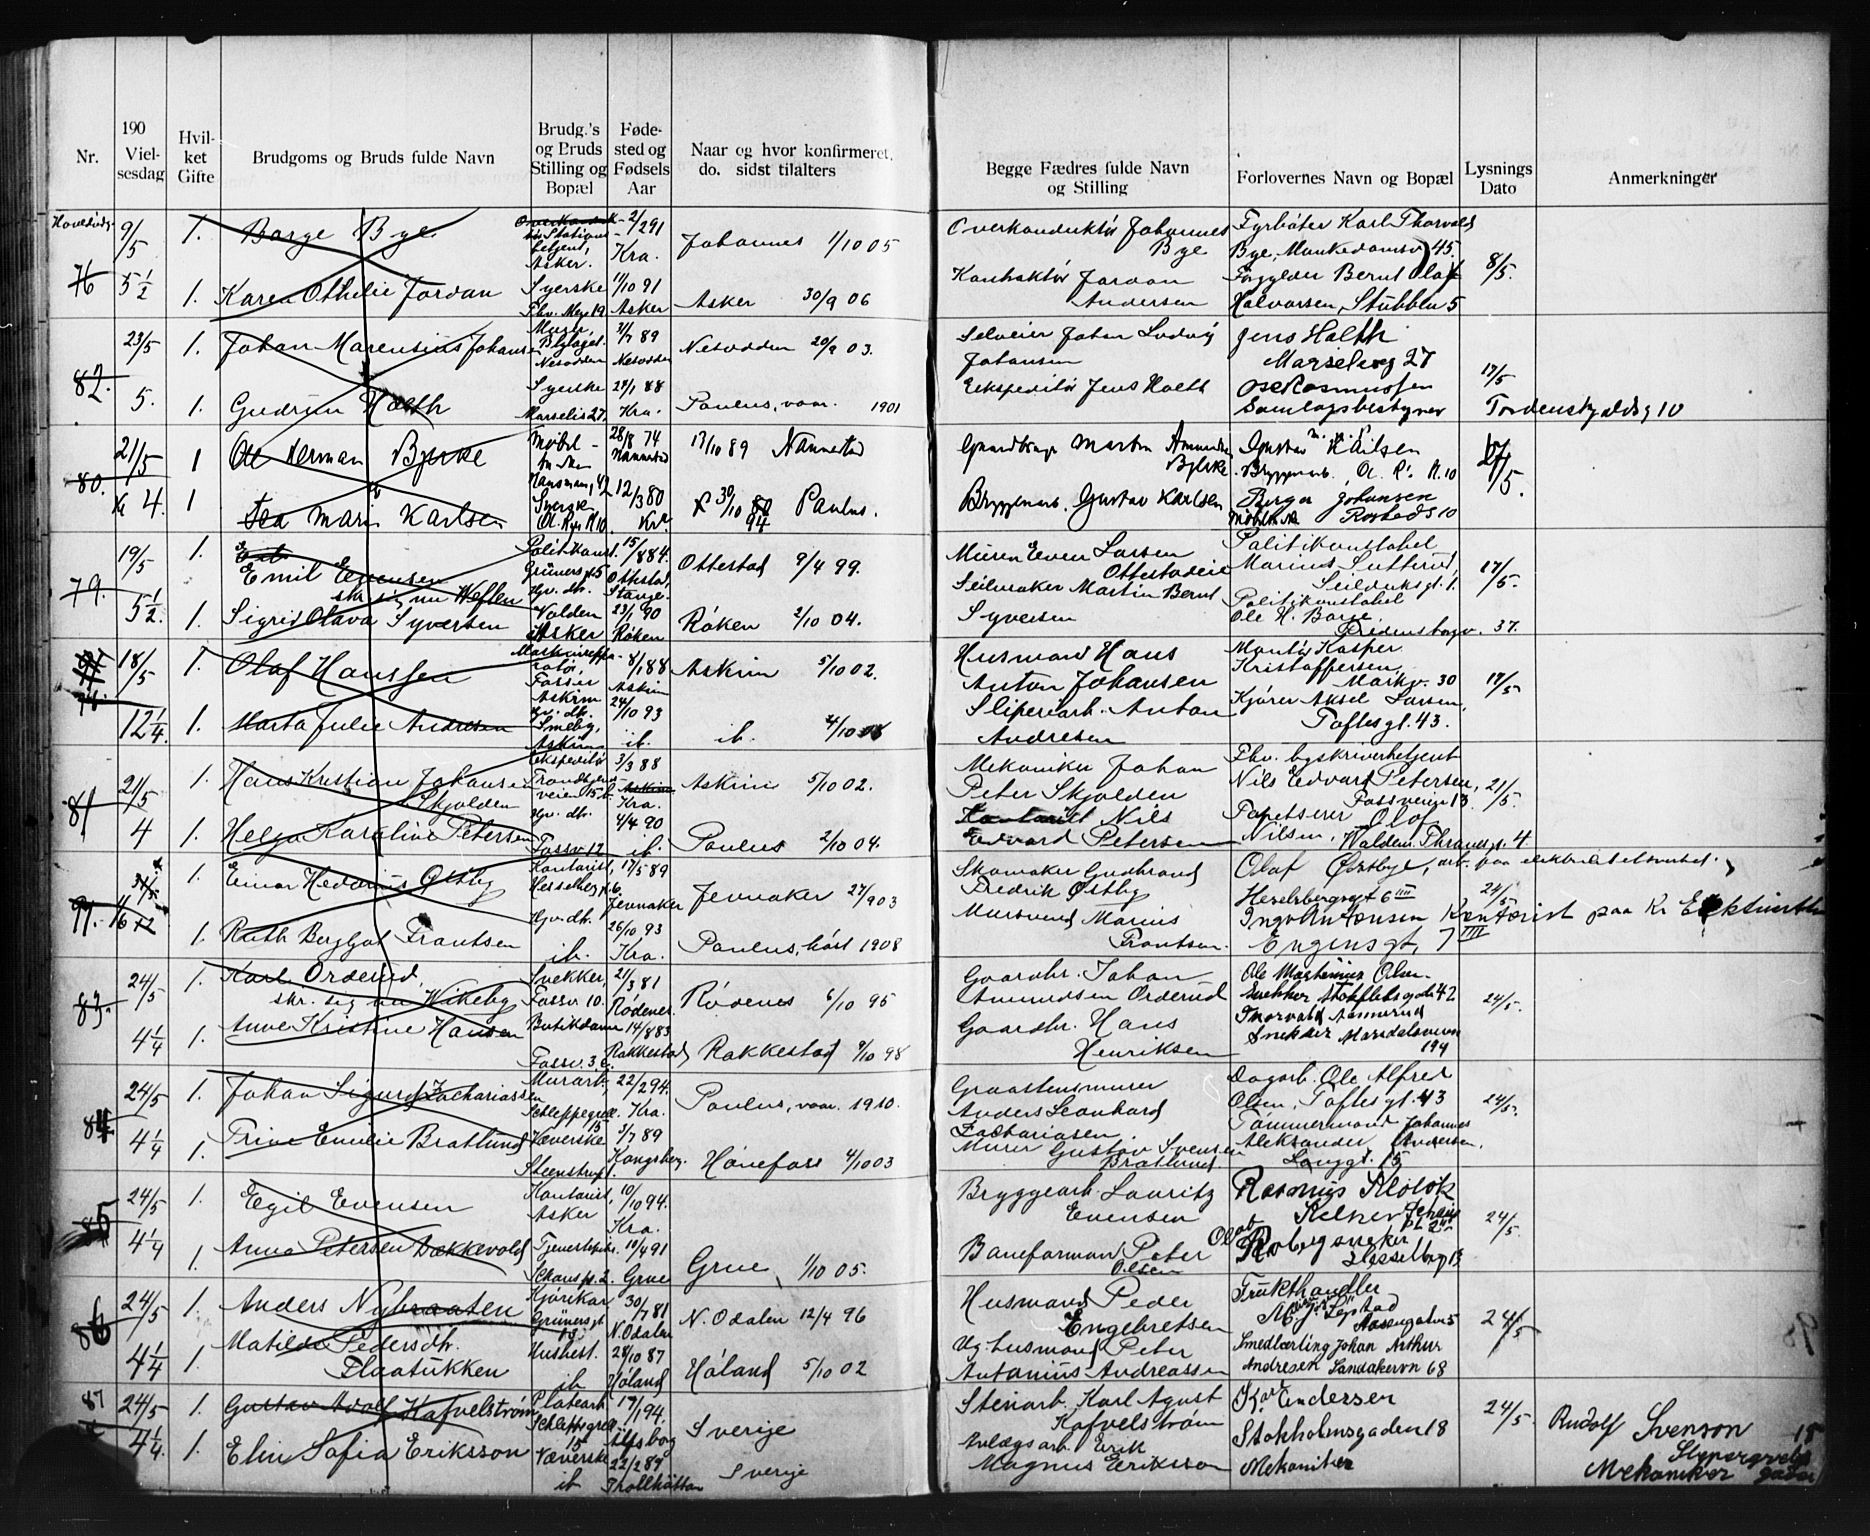 Nr.
190
Viel-
sesdag
Hvil-
ket
Gifte
Brudgoms og Bruds fulde Navn
Brudg.'s
og Bruds
Stilling og
Bopæl
Føde-
sted og
Fødsels
Aar
Naar og hvor konfirmeret,
do. sidst tilalters
Begge Fædres fulde Navn
og Stilling
Forlovernes Navn og Bopæl
Lysnings
Dato
Anmerkninger
76
9/5
5 1/2
1. Borge Bye
Asker.
2/2 91
Kra.
Johannes 1/10 05
Overkonduktør Johannes
Bye
Fyrbøter Karl Thorvald
Bye, Munkedamsv. 45.
8/5.
1. Karen Othelie Jordan
Syerske
11/10 91
Asker
Asker 30/9 06
Kontraktør Jordan
Andersen
Forgylder Bernt Olaf
Halvorsen, Stubblju 5
82.
23/5
5.
1. Johan Marensius Johansen
Nesodden
3/7 89
Nesodden
Nesodden 20/9 03.
Selveier Johan Ludvig
Johansen
Jens Holth
Marselisg 27
17/5
1. Gudrun Holth
Syerske
Marselis 27.
24/1 88
Kra.
Paulus, vaar. 1901
Ekspeditør Jens Holth
Ose Rasmussen
Samlagsbestyrer Tordenskjoldsg 10
80.
21/5
Kl 4.
1 Ole Herman Bjerke
Møbel-
28/8 74
Nannestad
17/10 89 Nannestad
Martin Amundsen
Bjerke.
Gustav Karlsen
Bryggearb.
1 Tea Marie Karlsen
Syerske
12/3 80
Kra
30/10 94 Paulus.
Bryggearb. Gustav Karlsen
Birger Johansen
Rosteds 10
79.
19/5
5 1/2.
1. Emil Evensen
skr. sig nu Weflen
Politikonst.
Grünersgt 5
15/8 84.
Ottestad,
Stange.
Ottestad 9/4 99.
Murer Even Larsen
Ottestadeie
Politikonstabel
Marius Sutterud,
Seilduksgt. 1.
17/5.
1. Sigrid Olava Syversen
Hgv. dtr.
Valden
Asker
23/1 90
Røken
Røken 2/10 04.
Seilmaker Martin Bernt
Syversen
Politikonstabel
Ole H. Borge,
Fredensborgv. 37.
78.
18/5
12 1/4.
1. Olaf Hanssen
Maskinrepa-
ratør,
Fossen
Askim
8/1 88
Askim
Askim 5/10 02.
Husmand Hans
Anton Johansen
Montør Kasper
Kristoffersen,
Markv. 30
18/5
1. Marta Julie Andresen
Hgv. dtr.
Smeby,
Askim
24/10 93
ib.
ib.
Sliperiarb. Anton
Andresen
Kjører Aksel Larsen,
Toftesgt. 43.
81
21/5
4
1. Hans Kristian Johansen
Skjolden
Ekspeditør
Trondhjems-
veien 15 b.
3/3 88
Askim
Kra.
Askim 5/10 02.
Mekaniker Johan
Peter Skjolden
Fhv. byskriverbetjent
Nils Edvard Petersen,
Fossveien 13.
21/5.
1. Helga Karoline Petersen
Hgv. dtr.
Fossv. 17
4/4 90
ib.
Paulus 2/10 04.
Kontorist Nils
Edvard Petersen
Tapetserer Olaf
Nilsen, Waldem. Thranesgt. 4
77.
1. Einar Hedenius Østby
Kontorist,
Hesselbergsgt. 6.
17/5 89
Jevnaker
Jevnaker 27/9 03
Skomaker Gudbrand
Fredrik Østby
Olaf Østbye, arb. paa elektricitetsverket.
Hesselbergsgt 6 III
24/5
1. Ruth Bergljot Frantsen
Hgv. dtr.
ib.
26/10 93
Kra.
Paulus, høst 1908
Marius
Frantsen.
Ingv Antonsen Kontorist paa Kr Elektricitetsv
Engensgt. 7 III
83.
24/5
4 1/4
1. Karl Orderud,
skr. sig nu Wikeby
Snekker,
Fossv 10.
21/3 81
Rødenes
Rødenes 6/10 95
Gaardbr. Johan
Amundsen Orderud
Ole Martinius Olsen.
Snekker Stokfletsgade 42
24/5.
1. Anne Kristine Hansen
Butikdame
Fossv. 3 c.
14/8 83
Rakkestad
Rakkestad 9/10 98
Gaardbr. Hans
Henriksen
Thorvald Aannerud
Snekker Maridalsveien
194
84
24/5
4 1/4
1. Johan Sigurd Zachariassen
Murarb.,
Schleppegrell.
15
22/2 94.
Kra.
Paulus, vaar. 1910.
Graastensmurer
Anders Leonhard
Zachariasen.
Dagarb. Ole Alfred
Olsen, Toftesgt. 43
24/5.
1. Trine Emilie Bratlund
Væverske
Steenstrupsgt.
3/7 89
Kongsberg.
Hønefoss 4/10 03
Murer Gustav Svensen
Bratlund
Tømmermand Johannes
Aleksander Andersen,
Langgt. 15
85
24/5
4 1/4
1. Egil Evensen
Kontorist,
Asker
10/10 94.
Kra.
Bryggearb. Lauritz
Evensen
Rasmus Klolok
Kelner
24/5.
1. Anna Petersen Bækkevold
Tjenestepike
Schouspl. 2.
10/4 91
Grue
Grue 1/10 05.
Baneformand Peter
Olsen
Olaf Roberg snekker
Hesselbg 13
86
24/5
4 1/4
1. Anders Nybraaten
Kjørekar
Grünersgt
15
30/7 81
N. Odalen
N. Odalen 12/4 96
Husmand Peder
Engebretsen
Frukthandler
M. J. Løvstad
Aasengaten 5
24/5
1. Matilde Pedersdtr.
Flaatukken
Husbest.
ib
28/10 87
Høland
Høland 5/10 02
Ug. husmand Peter
Antonius Andreassen
Smedlærling Johan Arthur
Andresen Sandakervn 68
87
24/5
4 1/4.
1. Gustav Adolf Kafvelström
Platearb
Schleppegrell
15
17/1 94.
Älfsborg
Sverige
Stenarb. Karl Agust
Kafvelstrøm
Kar Endersen
Stokholmsgaden 18
24/5.
Rudolf Svenson 15
Mekaniker
1. Elin Sofia Eriksson
Væverske
ib
22/2 89
Trollhättan
Sverige
Anlægsarb. Erik
Magnus Eriksson
Mekaniker